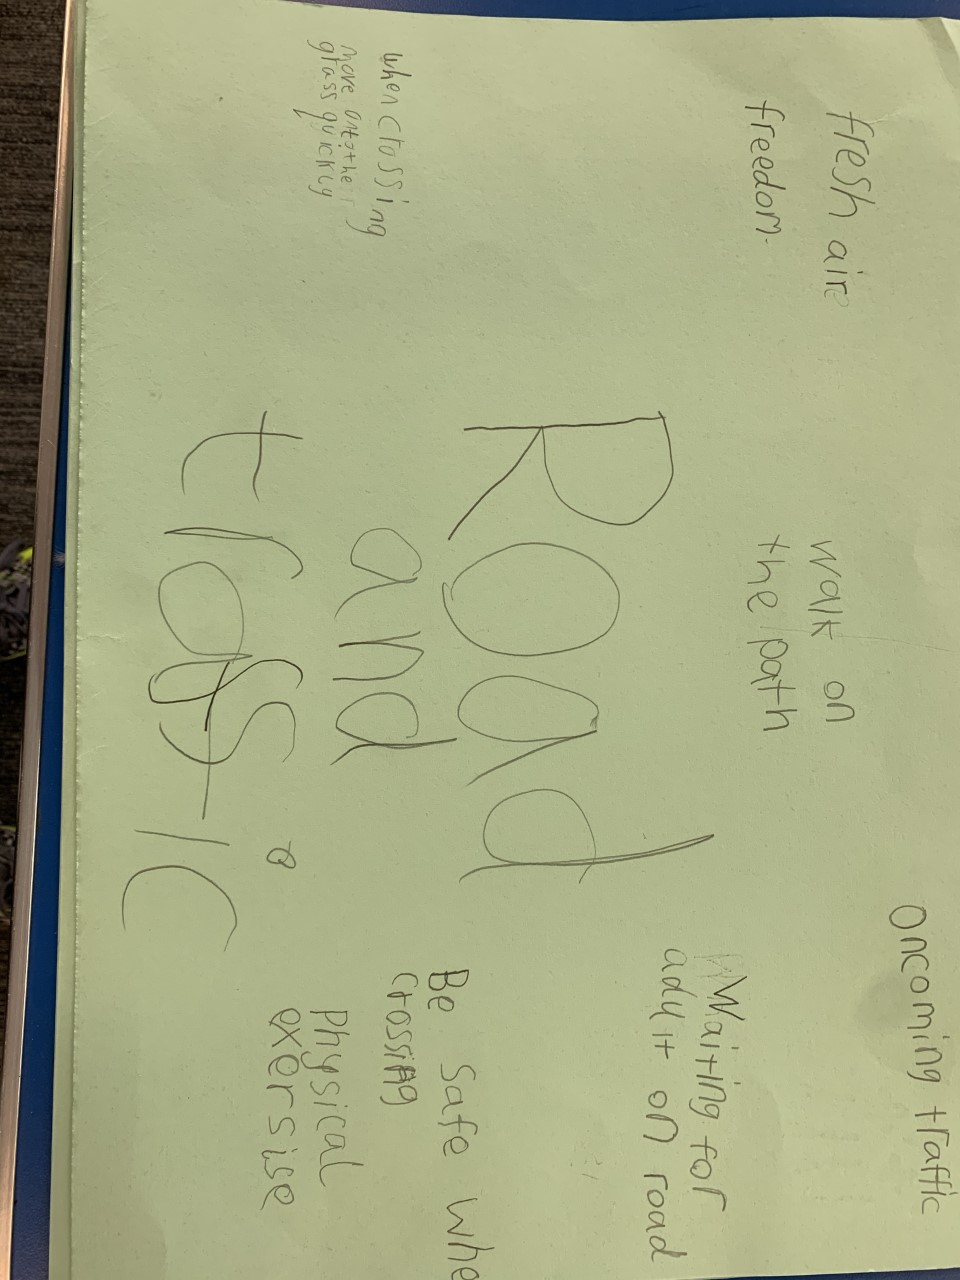 fresh aire
freedom.
walk on
the path
Oncoming traffic
Waiting for
adult on road
Road
and
traffic
when crossing
move onto the
grass quickly
Be safe whe
crossing
Physical
exersise